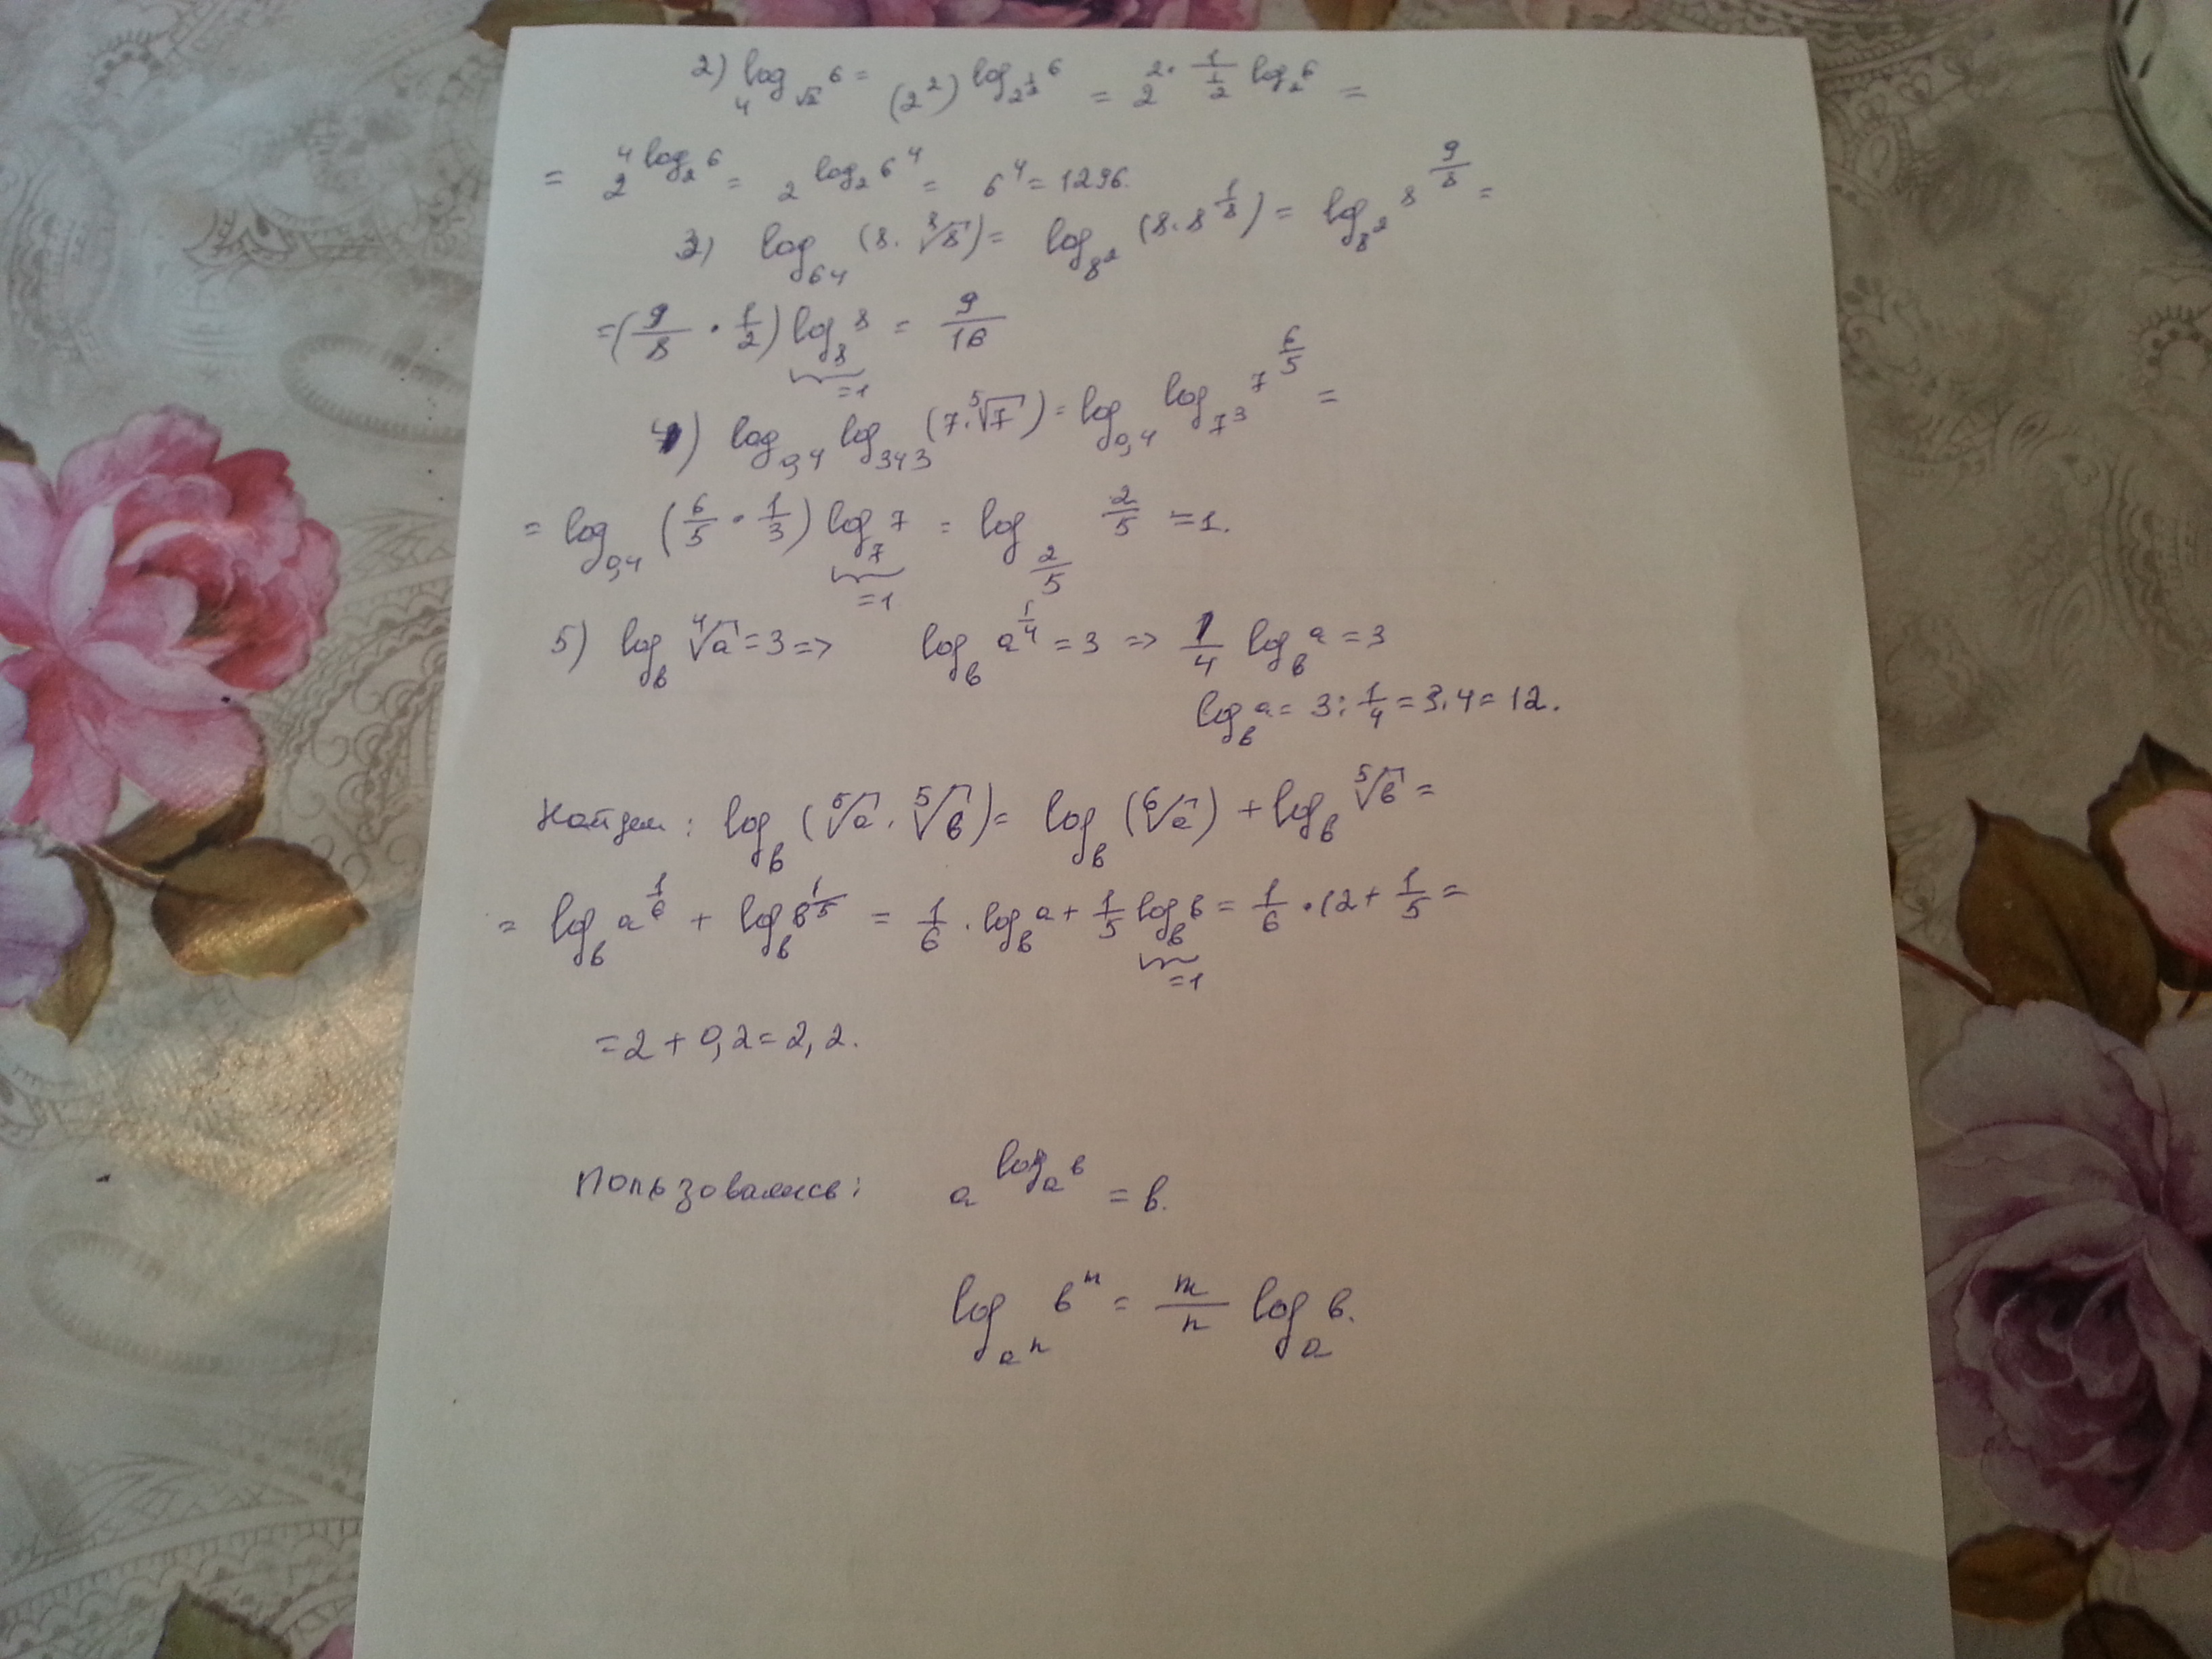 2) 4^(log_√2 6) = (2^2)^(log_(2^(1/2)) 6) = 2^(2·1/(1/2) log_2 6) =
= 2^(4 log_2 6) = 2^(log_2 6^4) = 6^4 = 1296.
3) log_64 (8·⁸√8) = log_(8^2) (8·8^(1/8)) = log_(8^2) 8^(9/8) =
= (9/8 · 1/2) log_8 8 = 9/16
=1
4) log_0,4 log_343 (7·⁵√7) = log_0,4 log_(7^3) 7^(6/5) =
= log_0,4 (6/5 · 1/3) log_7 7 = log_(2/5) 2/5 = 1.
=1
5) log_в ⁴√a = 3 => log_в a^(1/4) = 3 => 1/4 log_в a = 3
log_в a = 3 : 1/4 = 3·4 = 12.
Найдем: log_в (⁶√a · ⁵√в) = log_в (⁶√a) + log_в ⁵√в =
= log_в a^(1/6) + log_в в^(1/5) = 1/6 · log_в a + 1/5 log_в в = 1/6 · 12 + 1/5 =
=1
= 2 + 0,2 = 2,2.
Пользовались: a^(log_a в) = в.
log_(a^n) в^m = m/n log_a в.